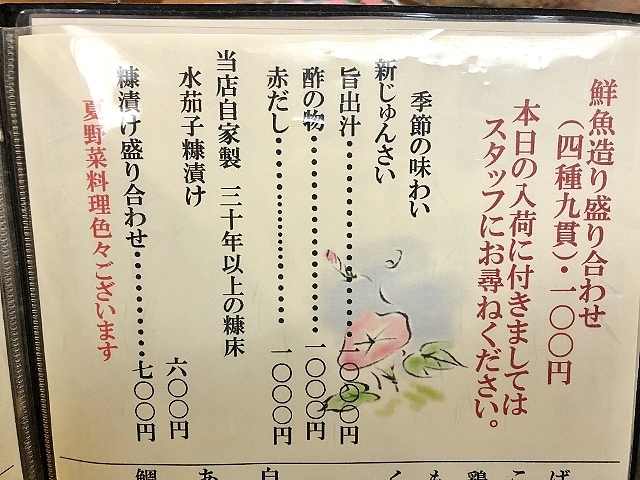 鮮魚造り盛り合わせ
（四種九貫）・一〇〇円
本日の入荷に付きましては
スタッフにお尋ねください。
季節の味わい
新じゅんさい
旨出汁・・・・・・・・・・・・・・一〇〇〇円
酢の物・・・・・・・・・・・・・・一〇〇〇円
赤だし・・・・・・・・・・・・・・一〇〇〇円
当店自家製 三十年以上の糠床
水茄子糠漬け 六〇〇円
糠漬け盛り合わせ・・・・・・・・七〇〇円
夏野菜料理色々ございます
ば
こ
鶏
も
く
白
あ
鯛